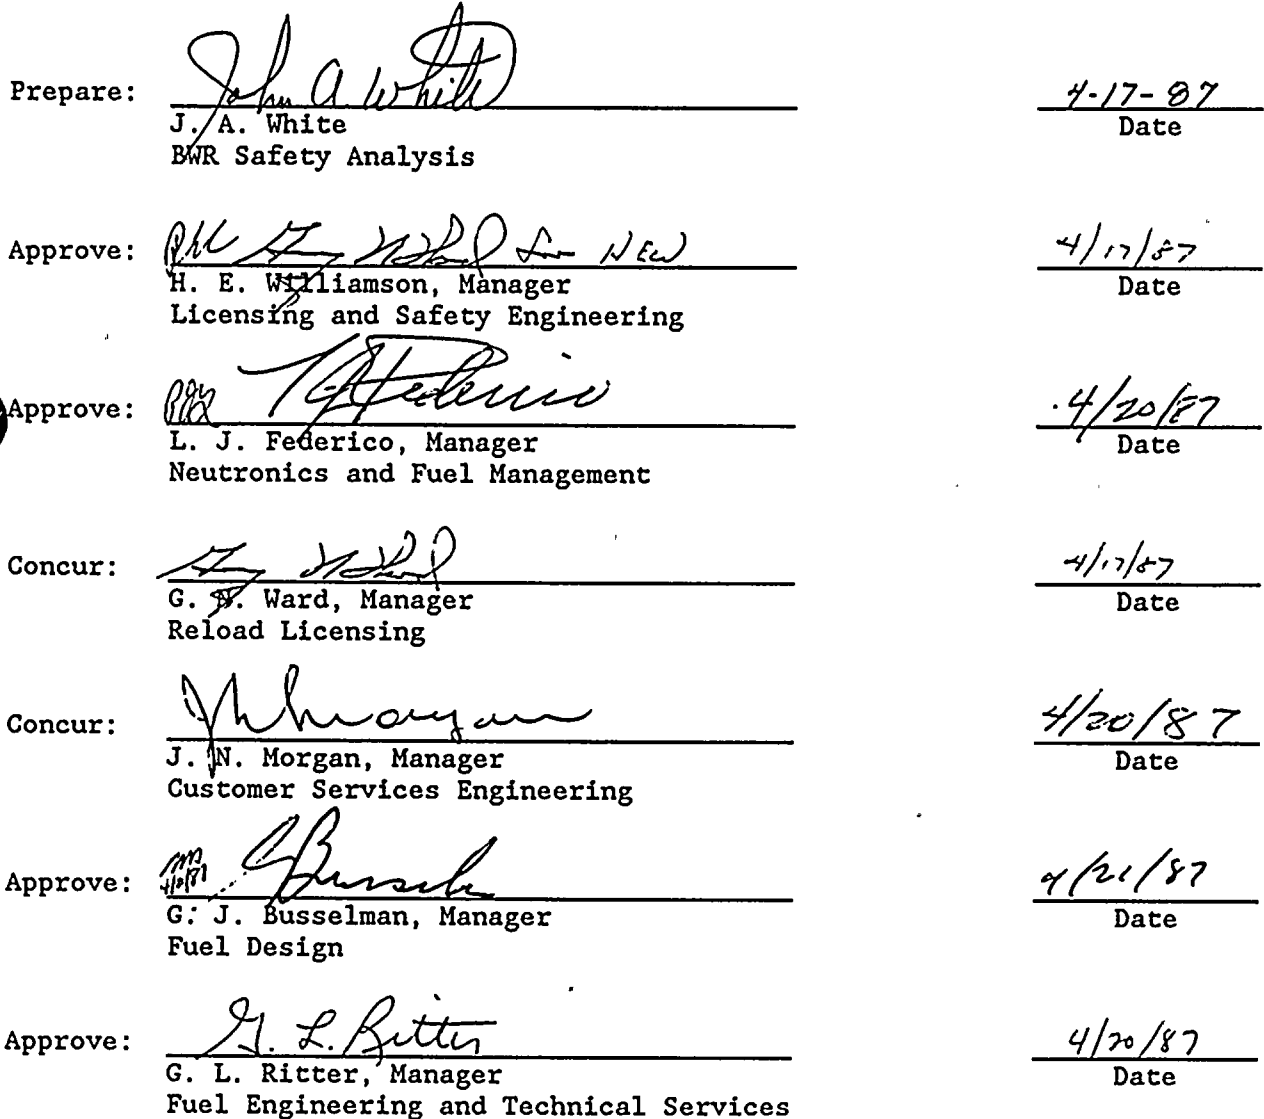 Prepare: John A White 4-17-87
J. A. White Date
BWR Safety Analysis
Approve: for HEW 4/17/87
H. E. Williamson, Manager Date
Licensing and Safety Engineering
Approve: Federico 4/20/87
L. J. Federico, Manager Date
Neutronics and Fuel Management
Concur: 4/17/87
G. N. Ward, Manager Date
Reload Licensing
Concur: J N Morgan 4/20/87
J. N. Morgan, Manager Date
Customer Services Engineering
Approve: 4/21/87
G. J. Busselman, Manager Date
Fuel Design
Approve: G. L. Ritter 4/20/87
G. L. Ritter, Manager Date
Fuel Engineering and Technical Services